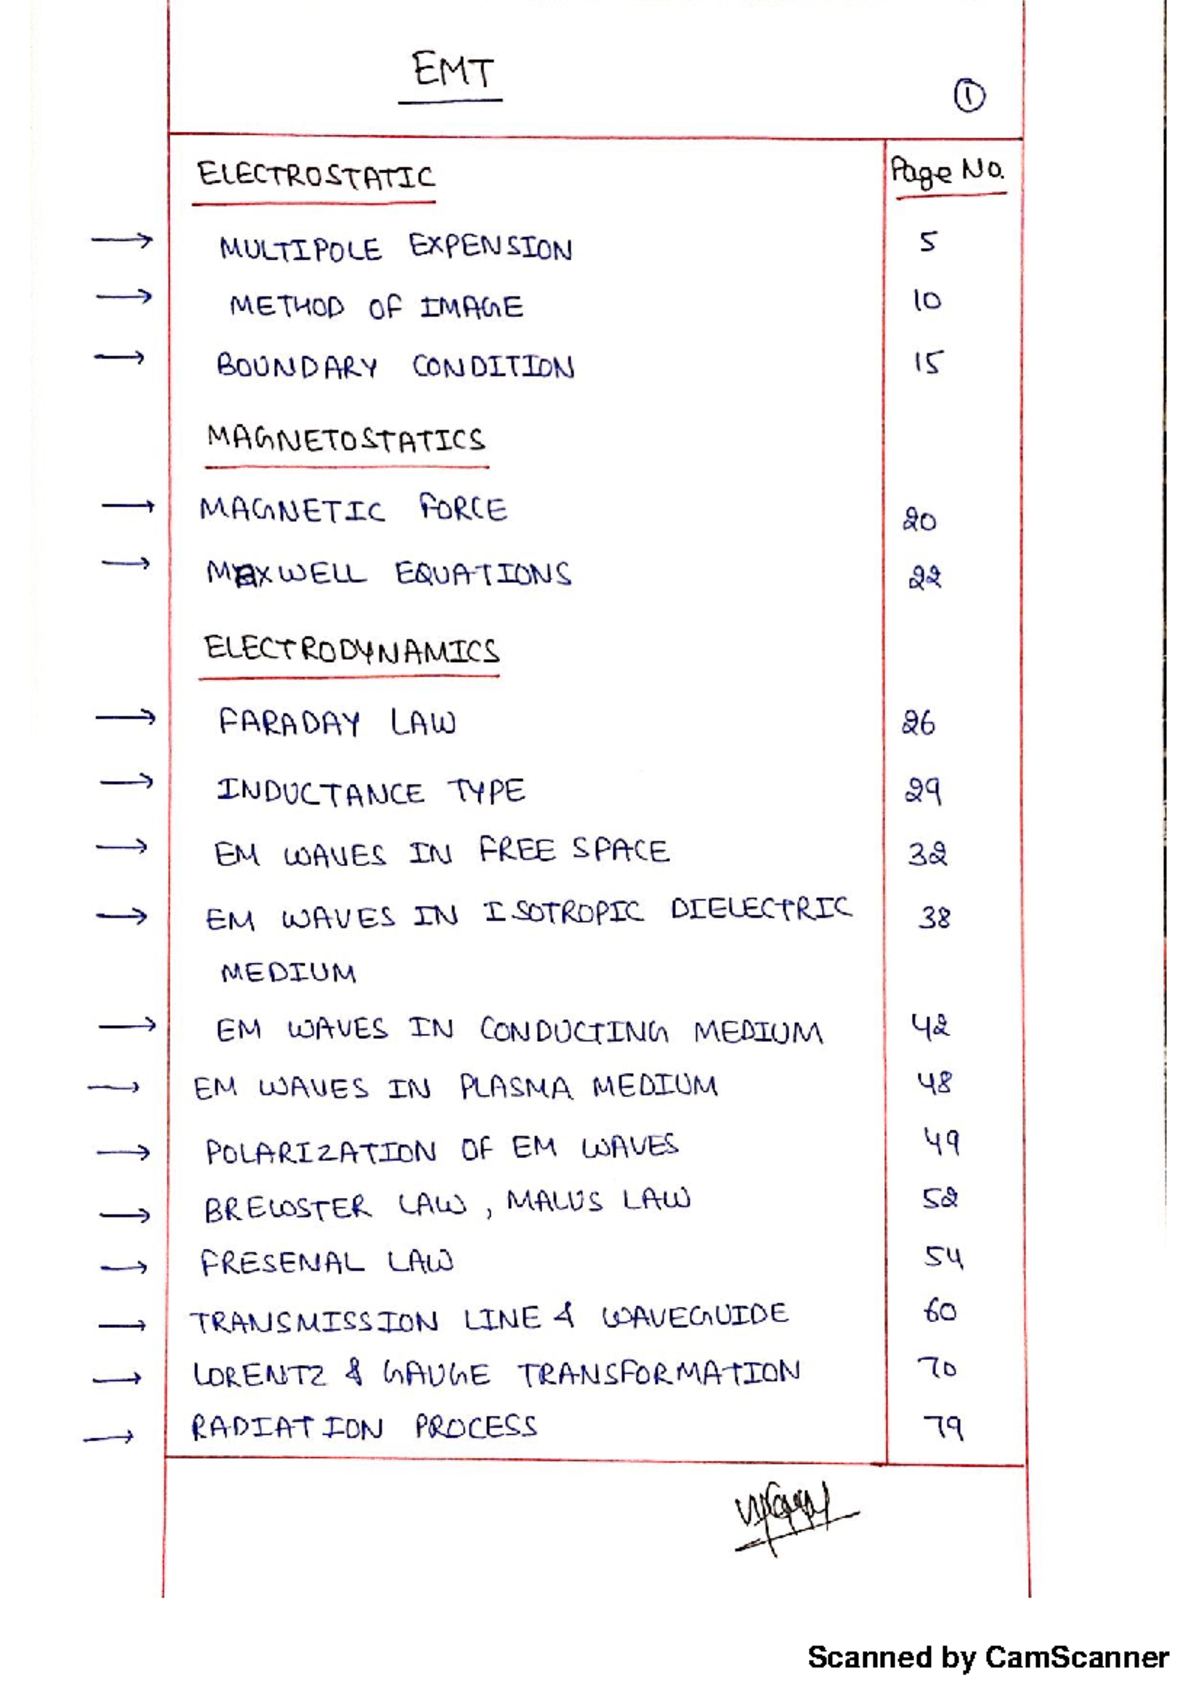 EMT
1
ELECTROSTATIC Page No.
MULTIPOLE EXPENSION 5
METHOD OF IMAGE 10
BOUNDARY CONDITION 15
MAGNETOSTATICS
MAGNETIC FORCE 20
MAXWELL EQUATIONS 22
ELECTRODYNAMICS
FARADAY LAW 26
INDUCTANCE TYPE 29
EM WAVES IN FREE SPACE 32
EM WAVES IN ISOTROPIC DIELECTRIC 38
MEDIUM
EM WAVES IN CONDUCTING MEDIUM 42
EM WAVES IN PLASMA MEDIUM 48
POLARIZATION OF EM WAVES 49
BREWSTER LAW, MALUS LAW 52
FRESENAL LAW 54
TRANSMISSION LINE & WAVEGUIDE 60
LORENTZ & GAUGE TRANSFORMATION 70
RADIATION PROCESS 79
Scanned by CamScanner